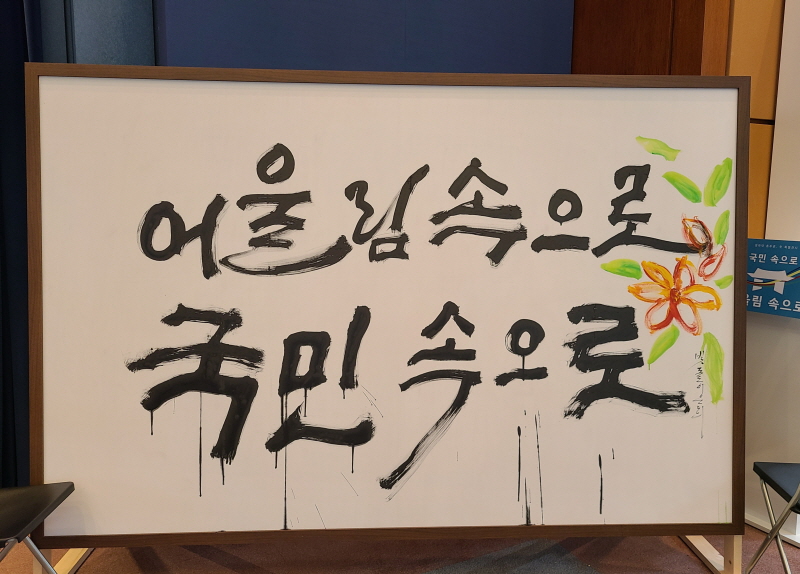 어울림속으로
국민 속으로
국민 속으로
울림 속으로